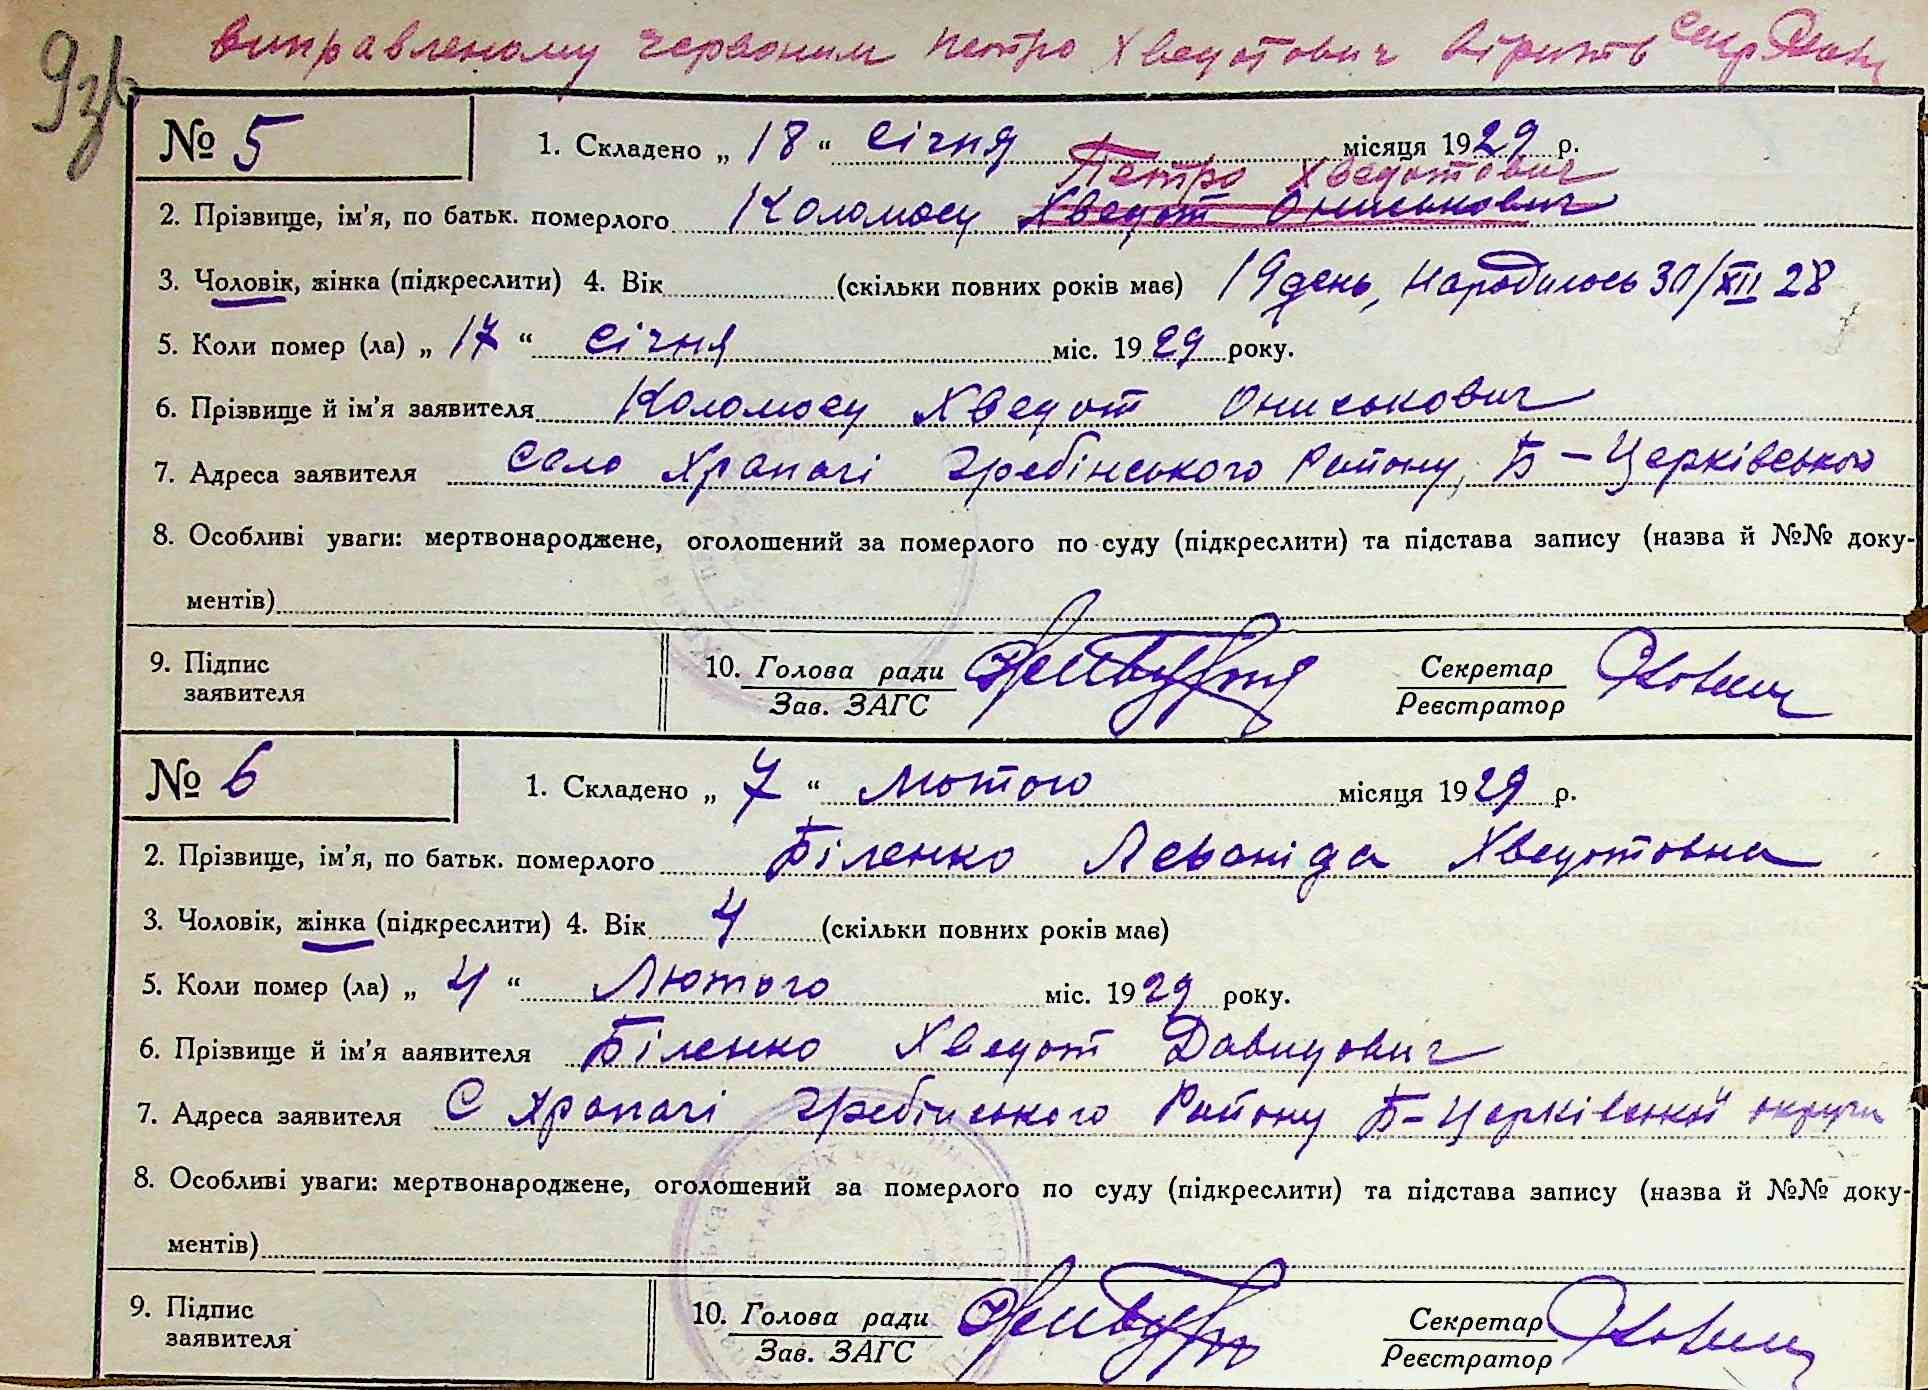 виправленому червоним Петро Хведотович вірить Секр
9зв
№ 5
1. Складено „ 18 “ Січня місяця 1929 р.
Петро Хведотович
2. Прізвище, ім’я, по батьк. померлого Коломоєу Хведот Ониськович
3. Чоловік, жінка (підкреслити) 4. Вік (скільки повних років має) 19 день, народилось 30/XII 28
5. Коли помер (ла) „ 17 “ Січня міс. 1929 року.
6. Прізвище й ім’я заявителя Коломоєу Хведот Ониськович
7. Адреса заявителя село Храпачі Гребінського Району, Б–Церківського
8. Особливі уваги: мертвонароджене, оголошений за померлого по суду (підкреслити) та підстава запису (назва й №№ доку-
ментів)
9. Підпис
заявителя
10. Голова ради
Зав. ЗАГС
Секретар
Реєстратор
№ 6
1. Складено „ 7 “ Лютого місяця 1929 р.
2. Прізвище, ім’я, по батьк. померлого Біленко Леваніда Хведотовна
3. Чоловік, жінка (підкреслити) 4. Вік 4 (скільки повних років має)
5. Коли помер (ла) „ 4 “ Лютого міс. 1929 року.
6. Прізвище й ім’я ааявителя Біленко Хведот Давидович
7. Адреса заявителя С Храпачі Гребінського Району Б–Церківської округи
8. Особливі уваги: мертвонароджене, оголошений за померлого по суду (підкреслити) та підстава запису (назва й №№ доку-
ментів)
9. Підпис
заявителя
10. Голова ради
Зав. ЗАГС
Секретар
Реєстратор